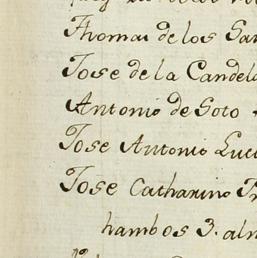 Thomas de los San
Jose de la Candela
Antonio de Soto
Jose Antonio Luci
Jose Catharino Tr
hambos 3. alm